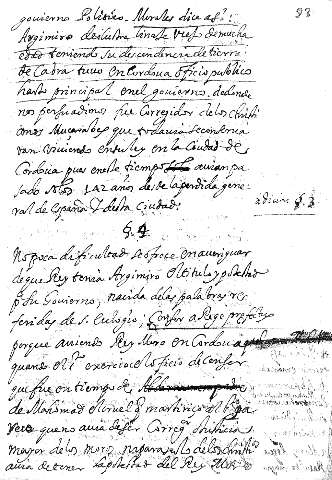 93
govierno Politico. Morales dice
Argimiro de ilustre linage viejo de mucha
edad teniendo su descendencia de tierra
de Cabra tuvo en Cordoua oficio publico
harto principal en el govierno, de donde
nos persuadimos fue Corregidor de los christi
anos Muzarabes que todauia se conserua
van viviendo en su ley en la Ciudad de
Cordoua pues en este tiempo avian pa
sado años 142 años desde la perdida gene
ral de España y desta Ciudad.
§. 4
No poca dificultad se ofrece en averiguar
de que Rey tenia Argimiro el titulo y potestad
de su Govierno, nacida de las palabras re
feridas de S. Eulogio, Censor a Rege prefectus
porque aviendo Rey Moro en Cordoua
quando el exercio el oficio de Censor
que fue en tiempo de
de Mahomad el cruel q martirizo
parece que no avia de ser Correg. o Justicia
mayor de los moros para los christi
avia de tener la potestad del Rey Moro